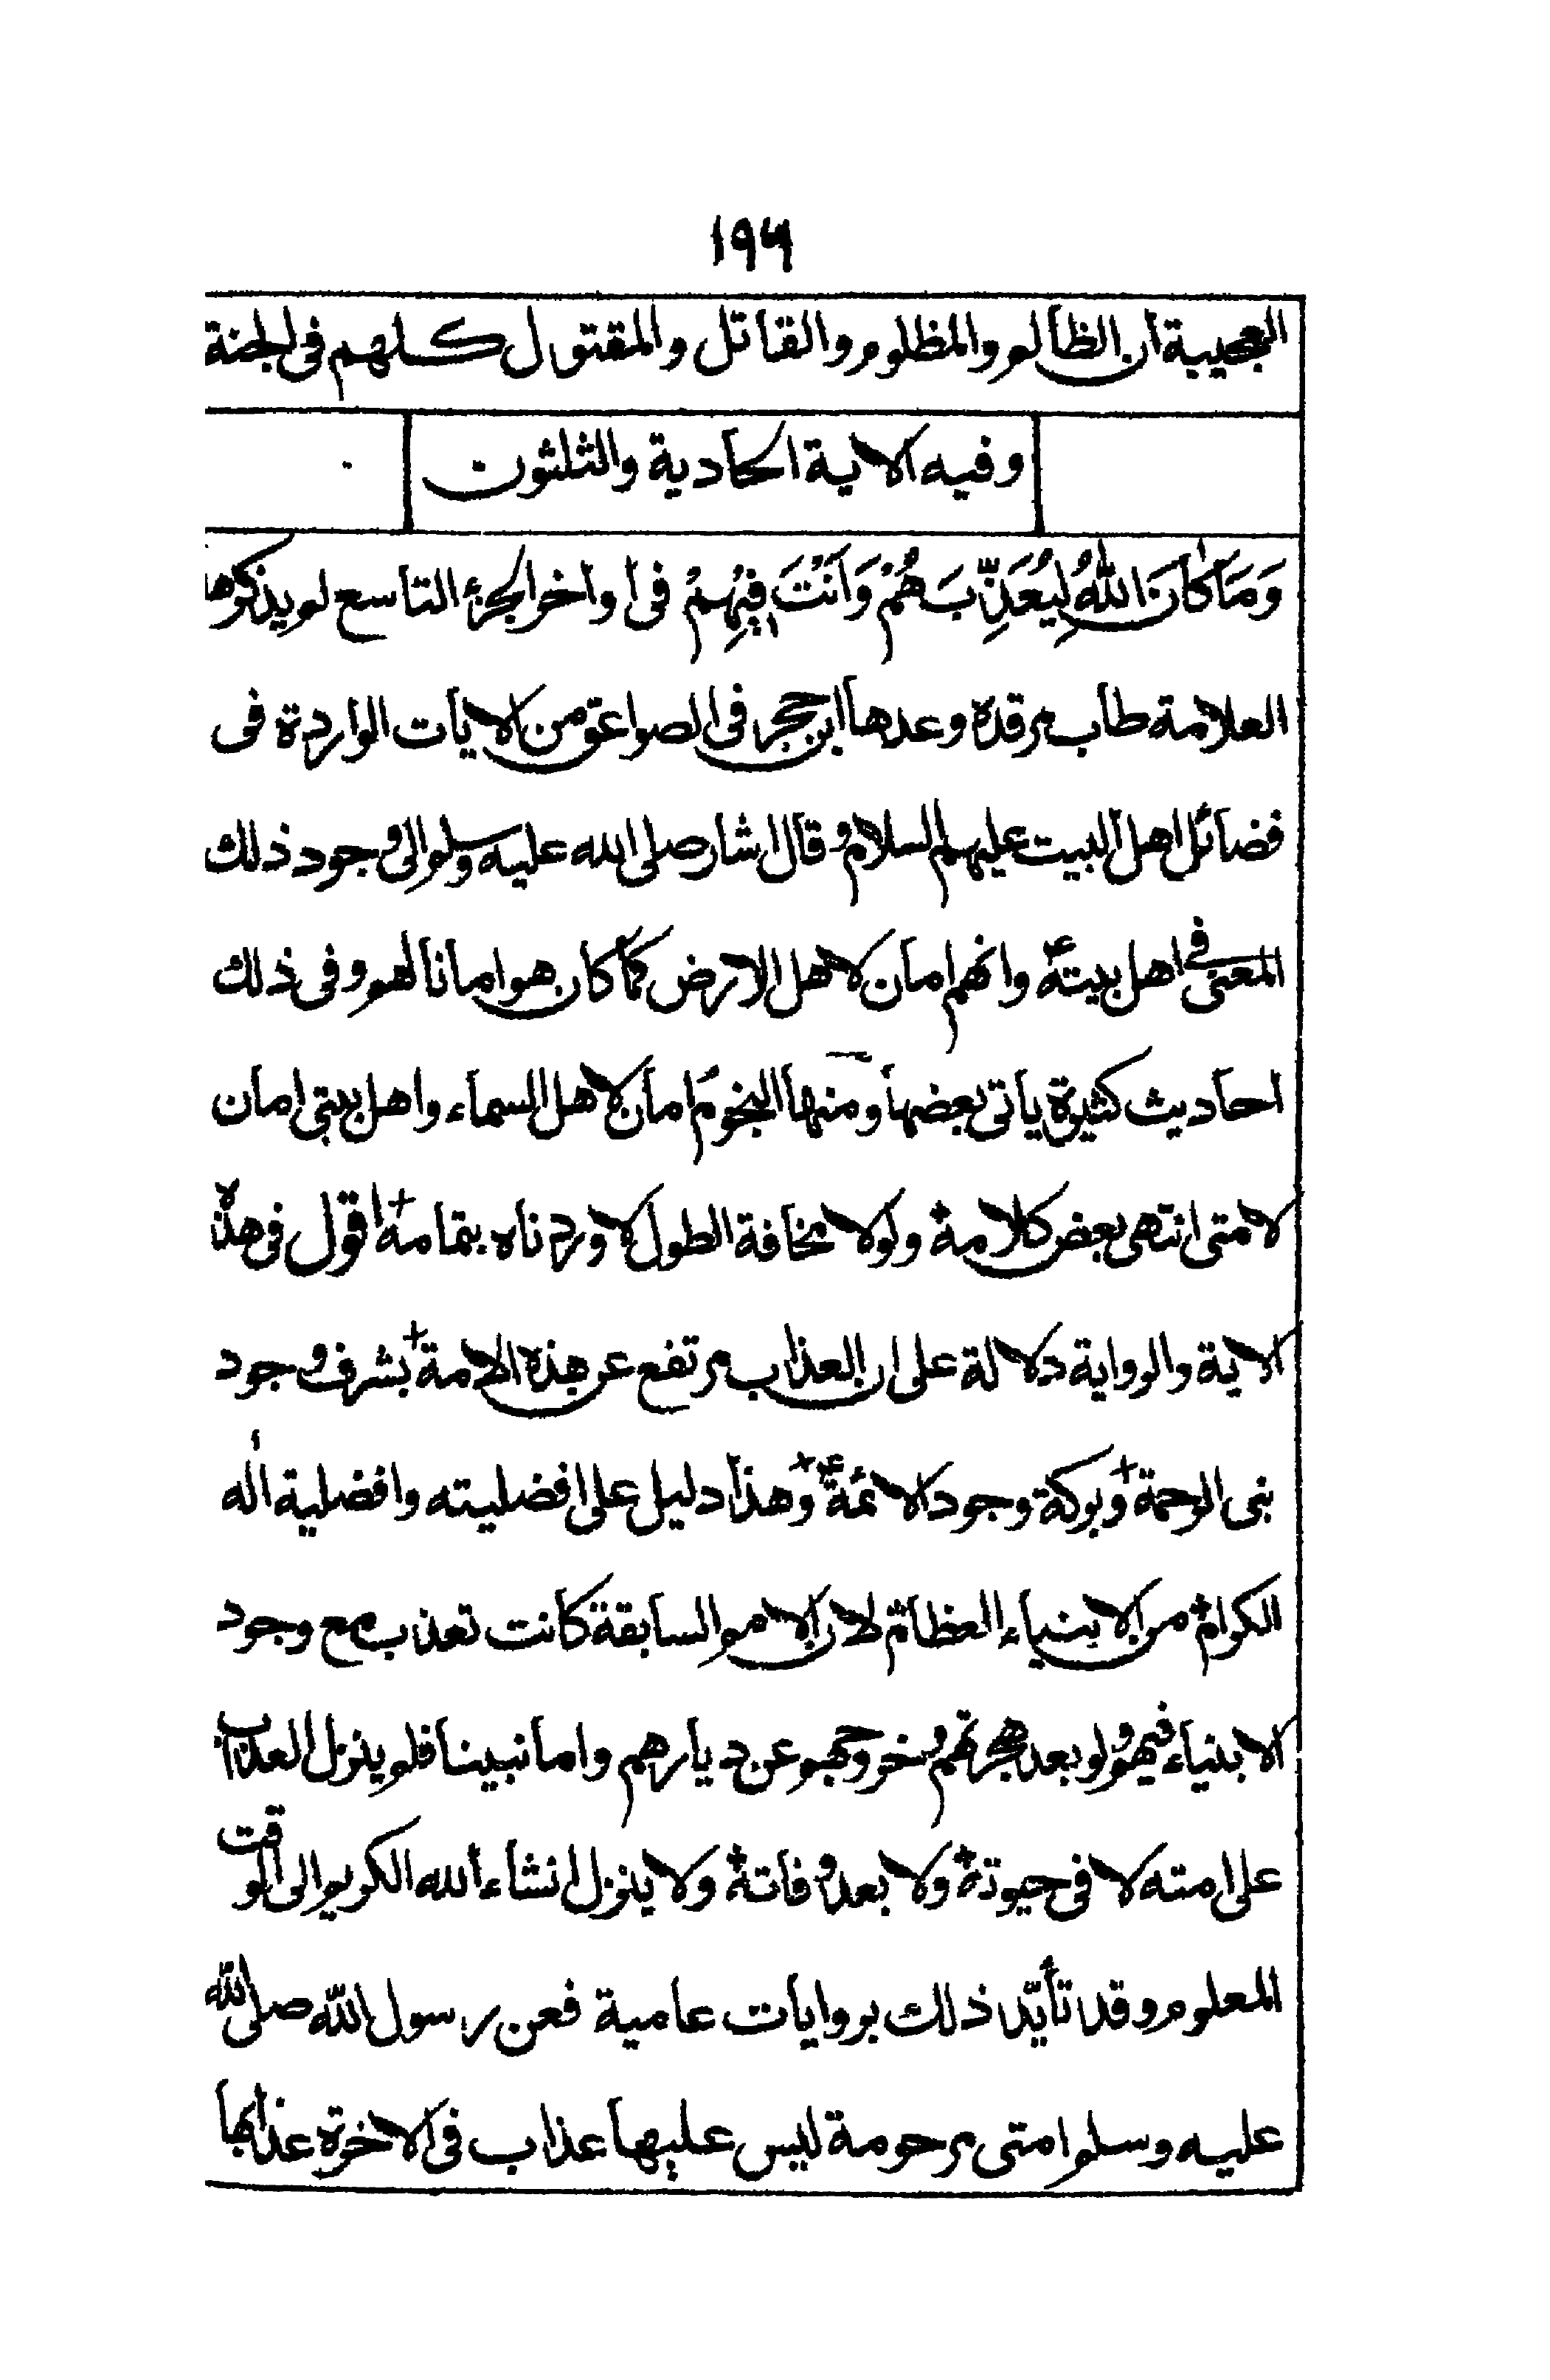 ١٩٦
العجيبة ان الظالم والمظلوم والقاتل والمقتول كلهم فى الجنة
وفيه الاية الحادية والثلثون
وَمَا كَانَ اللهُ لِيُعَذِّبَهُمْ وَاَنْتَ فِيْهِمْ فى اواخر الجزء التاسع لم يذكرها
العلامة طاب مرقده وعدها ابن حجر فى الصواعق من الايات الواردة فى
فضائل اهل البيت عليهم السلام وقال اشار صلى الله عليه وسلم الى وجود ذلك
المعنى فى اهل بيته وانهم امان لاهل الارض كما كان هو امانا لهم وفى ذلك
احاديث كثيرة ياتى بعضها ومنها النجوم امان لاهل السماء واهل بيتى امان
لامتى انتهى بعض كلامه ولولا مخافة الطول لاوردناه بتمامه اقول فى هذه
الاية والرواية دلالة على ان العذاب مرتفع عن هذه الامة بشرف وجود
نبى الرحمة وبركة وجود الائمة وهذا دليل على افضليته وافضلية اله
الكرام من الانبياء العظام لان الامم السابقة كانت تعذب مع وجود
الانبياء فيهم ولو بعد هجرتهم وخروجهم عن ديارهم واما نبينا فلم ينزل العذاب
على امته لا فى حيوته ولا بعد وفاته ولا ينزل انشاء الله الكريم الى الوقت
المعلوم وقد تأيّد ذلك بروايات عامية فعن رسول الله صلى الله
عليه وسلم امتى مرحومة ليس عليها عذاب فى الاخرة عذابها